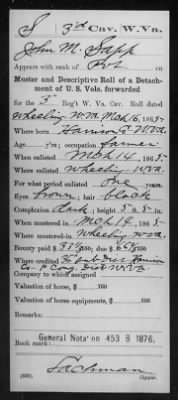 S 3'd Cav. W.Va.
John M. Sapp
Appears with rank of Pvt on
Muster and Descriptive Roll of a Detach-
ment of U. S. Vols. forwarded
for the 3 Reg't W. Va. Cav. Roll dated
Wheeling W. Va. Mch 16, 1865.
Where born Harrison Co W. Va.
Age y'rs; occupation farmer
When enlisted Mch 14, 1865
Where enlisted Wheeling W. Va.
For what period enlisted one years.
Eyes brown; hair black
Complexion dark; height 5 ft. 5 in.
When mustered in Mch 14, 1865.
Where mustered in Wheeling W. Va.
Bounty paid $ 100; due $ 100
Where credited Sub Dist Harrison
Co Cong. Dist W. Va.
Company to which assigned
Valuation of horse, $ 100
Valuation of horse equipments, $ 100
Remarks:
General Notation 453 B 1876.
Book mark:
Lachman
(339) Copyist.